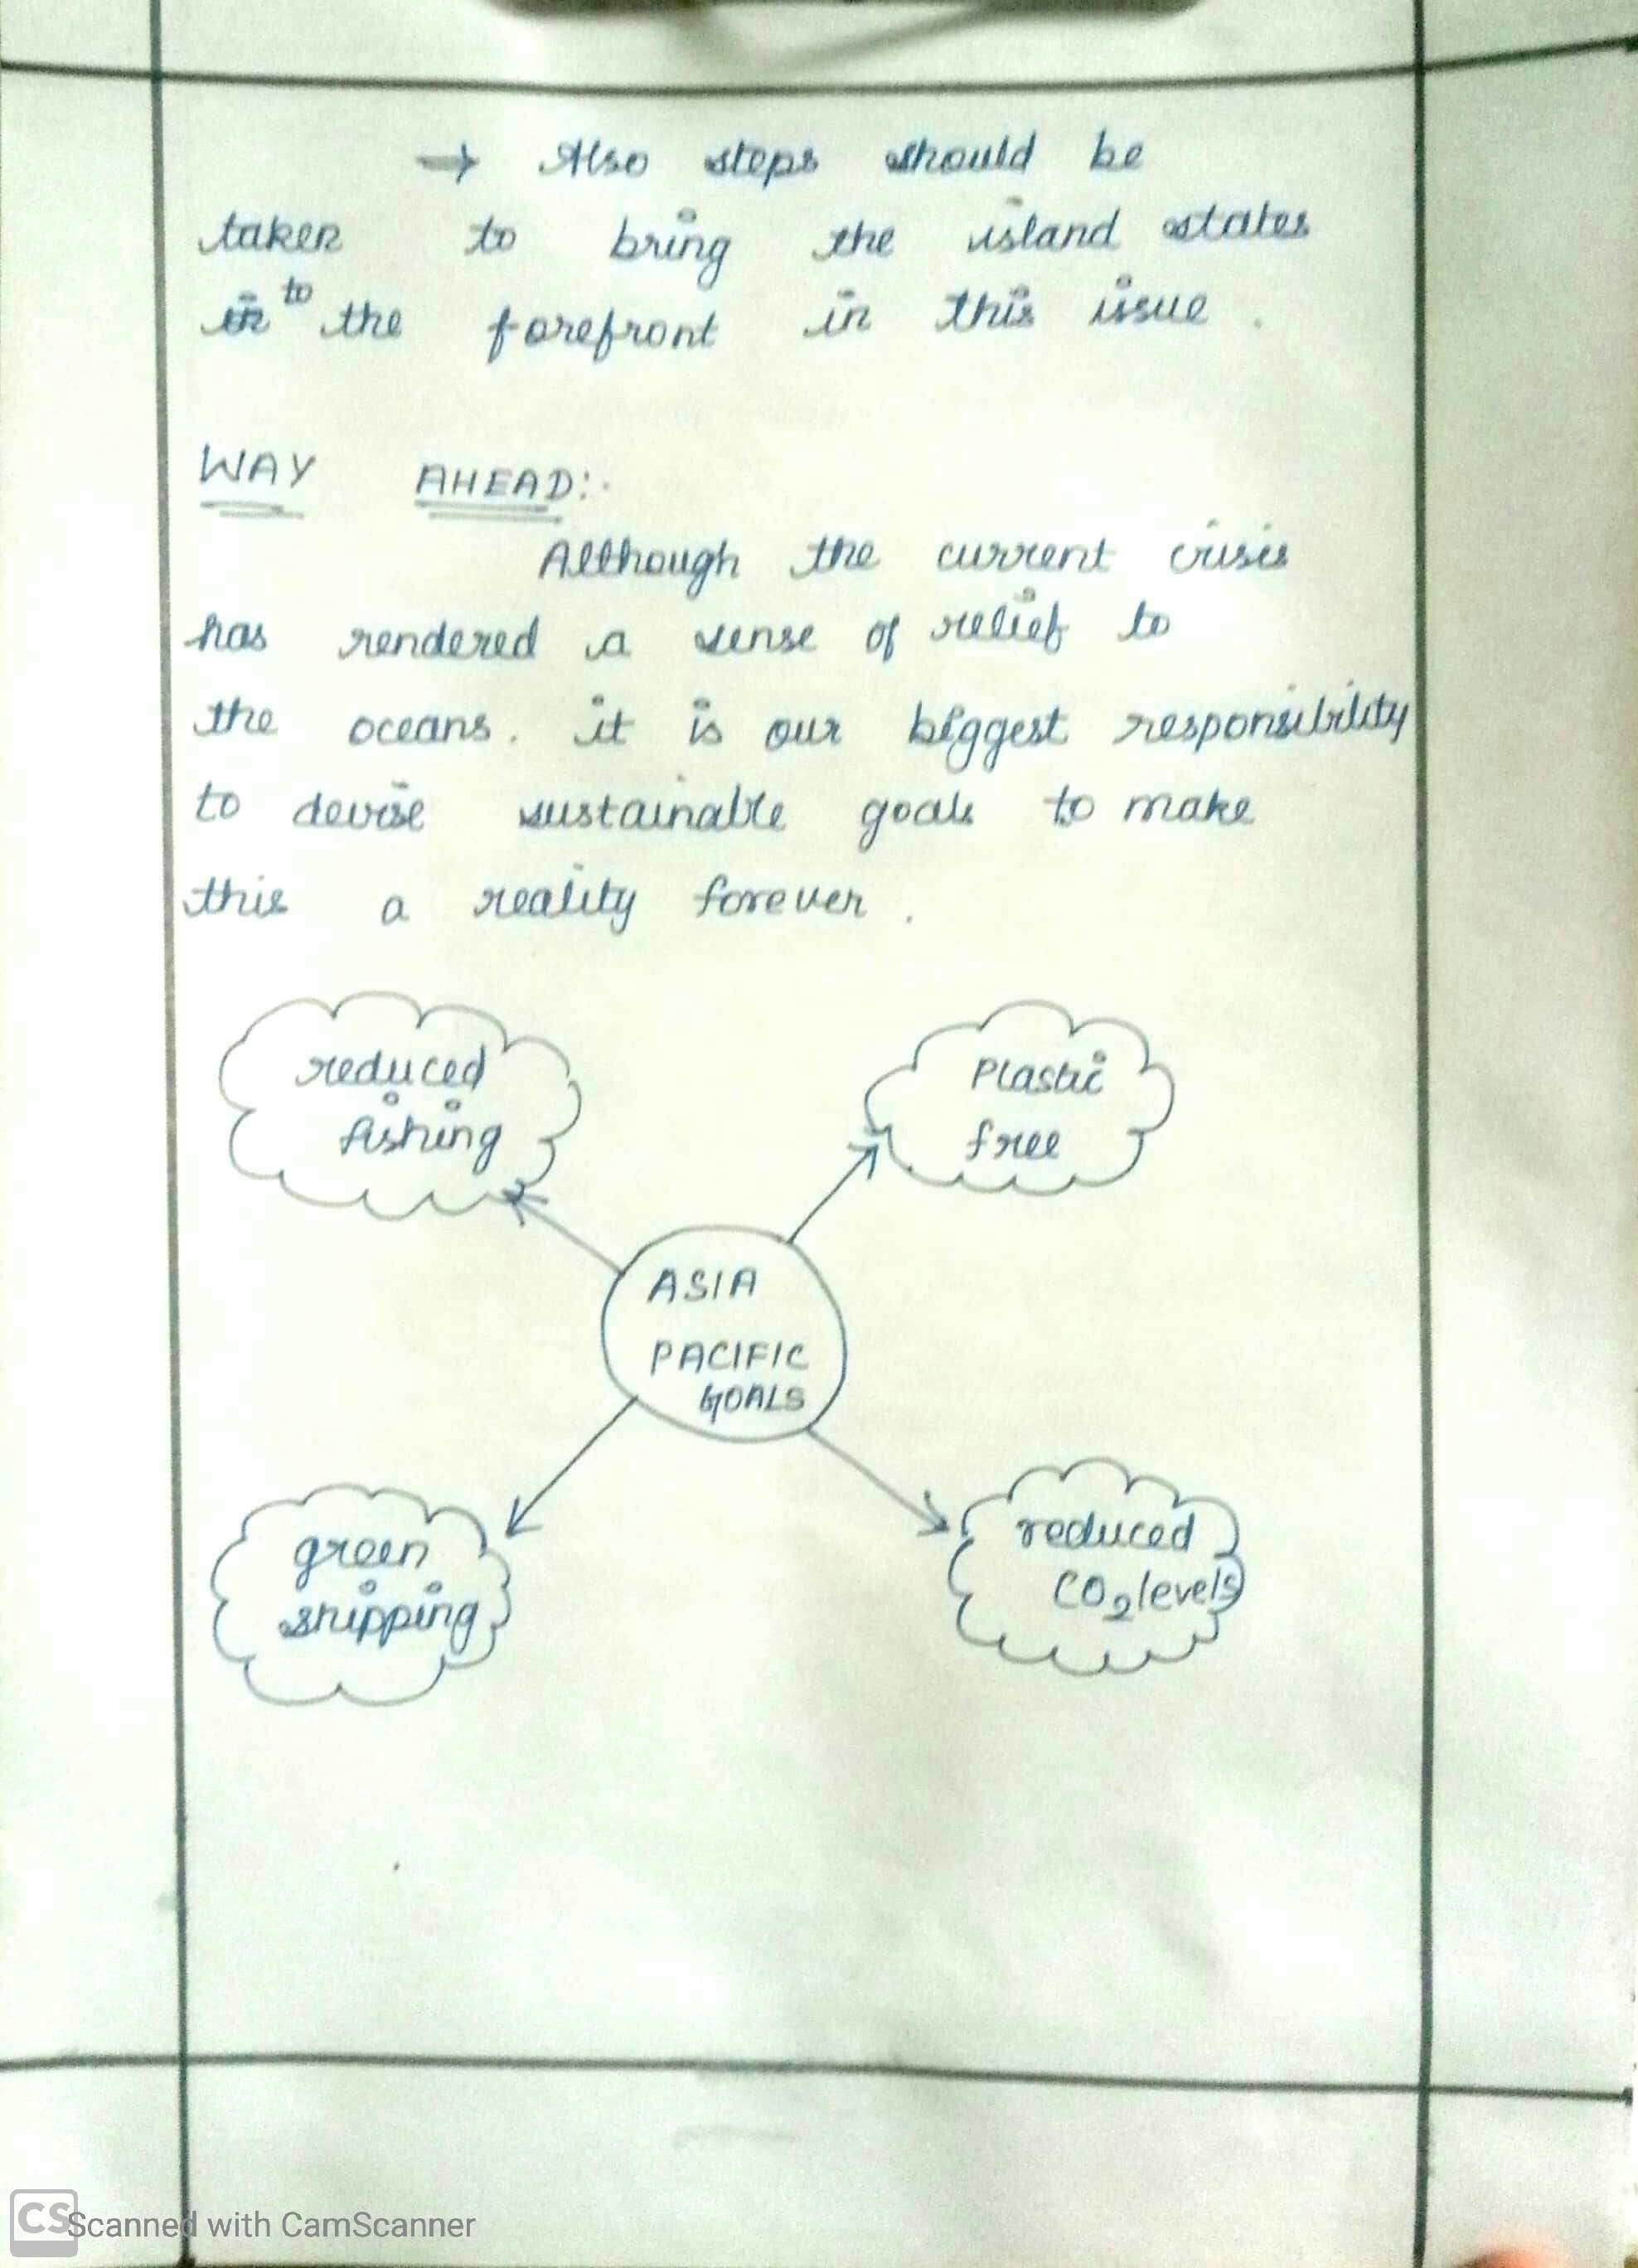 → Also steps should be
taken to bring the island states
in to the forefront in this issue.
WAY AHEAD:-
Although the current crisis
has rendered a sense of relief to
the oceans. it is our biggest responsibility
to devise sustainable goals to make
this a reality forever.
reduced
fishing
Plastic
free
ASIA
PACIFIC
GOALS
green
shipping
reduced
CO2 levels
CS
Scanned with CamScanner